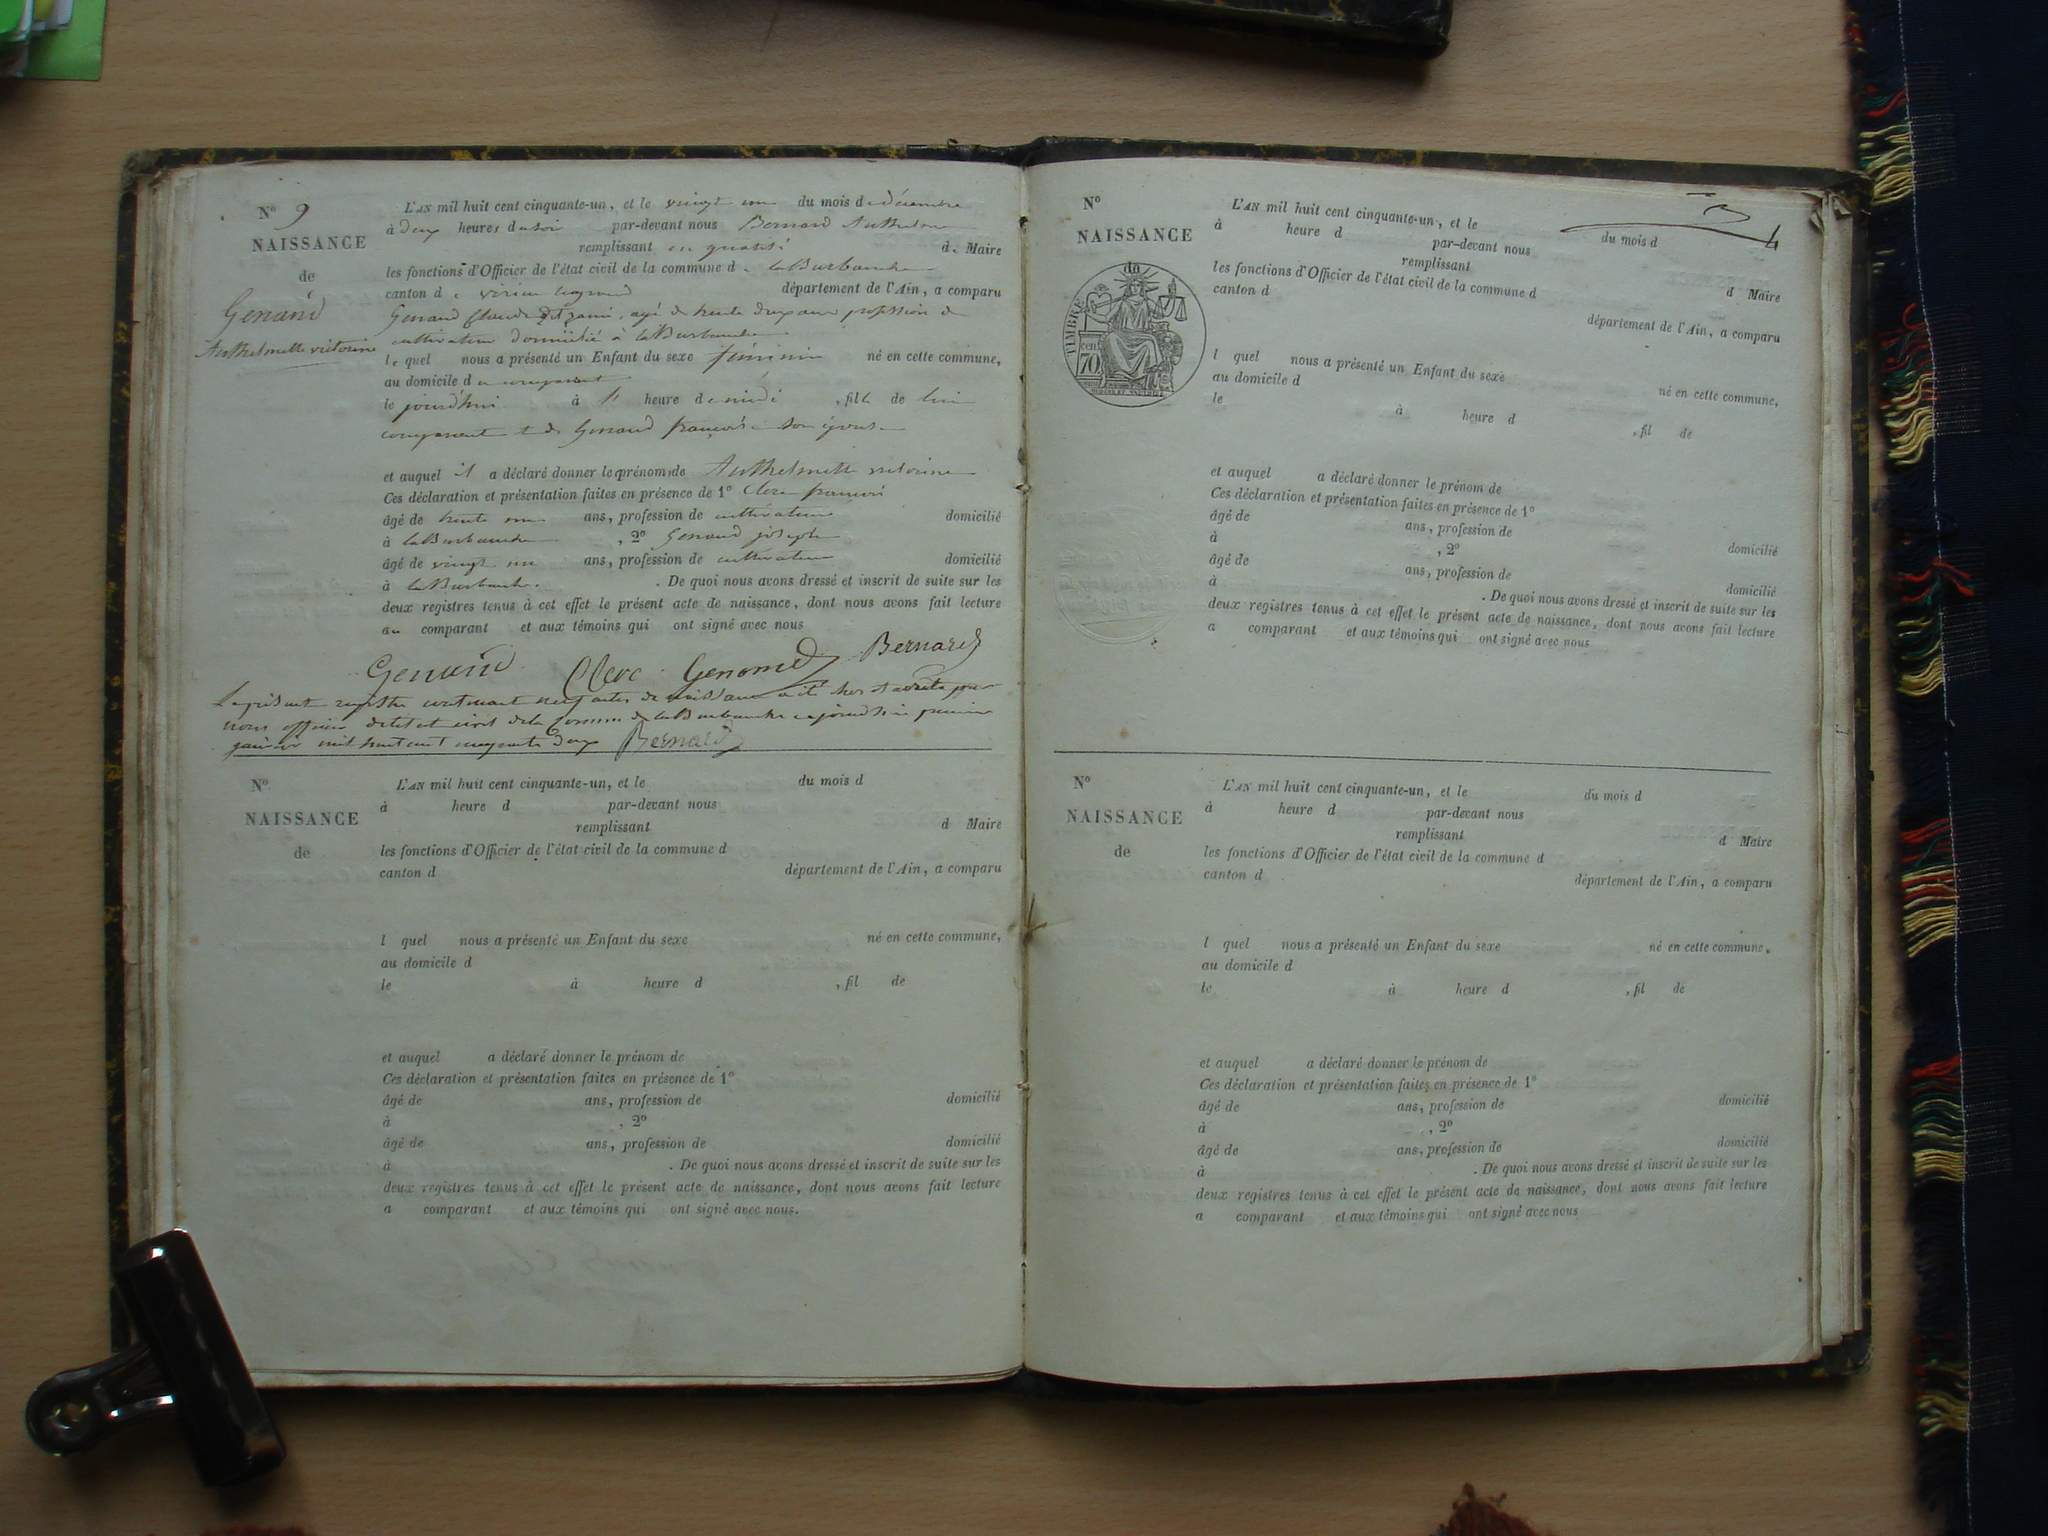 N° 9
NAISSANCE
de
Genand
Anthelmette victorine
L'AN mil huit cent cinquante-un, et le vingt un du mois de décembre
à deux heures du soir par-devant nous Bernard Anthelme
remplissant en qualité de Maire
les fonctions d'Officier de l'état civil de la commune de laBurbanche
canton de virieu legrand département de l'Ain, a comparu
Genand Claude agé de trente deux ans profession de
cultivateur domicilié à laBurbanche
le quel nous a présenté un Enfant du sexe féminin né en cette commune,
au domicile du comparant
le jourd'hui à heure de midi , fille de lui
comparant et de Genand françoise son épouse
et auquel il a déclaré donner les prénoms de Anthelmette victorine
Ces déclaration et présentation faites en présence de 1° Clerc françois
âgé de trente un ans, profession de cultivateur domicilié
à laBurbanche , 2° Genand joseph
âgé de vingt un ans, profession de cultivateur domicilié
à laBurbanche . De quoi nous avons dressé et inscrit de suite sur les
deux registres tenus à cet effet le présent acte de naissance, dont nous avons fait lecture
au comparant et aux témoins qui ont signé avec nous
Genand Clerc Genand Bernard
Le présent registre contenant neuf actes de naissance a été clos et arrêté par
nous officier de l'état civil de la commune de laBurbanche cejourd'hui premier
janvier mil huit cent cinquante deux Bernard
N°
NAISSANCE
de
L'AN mil huit cent cinquante-un, et le du mois d
à heure d par-devant nous
remplissant d Maire
les fonctions d'Officier de l'état civil de la commune d
canton d département de l'Ain, a comparu
l quel nous a présenté un Enfant du sexe né en cette commune,
au domicile d
le à heure d , fil de
et auquel a déclaré donner le prénom de
Ces déclaration et présentation faites en présence de 1°
âgé de ans, profession de domicilié
à , 2°
âgé de ans, profession de domicilié
à . De quoi nous avons dressé et inscrit de suite sur les
deux registres tenus à cet effet le présent acte de naissance, dont nous avons fait lecture
a comparant et aux témoins qui ont signé avec nous.
N°
NAISSANCE
de
TIMBRE
cen.
70
L'AN mil huit cent cinquante-un, et le du mois d
à heure d par-devant nous
remplissant d Maire
les fonctions d'Officier de l'état civil de la commune d
canton d département de l'Ain, a comparu
l quel nous a présenté un Enfant du sexe né en cette commune,
au domicile d
le à heure d , fil de
et auquel a déclaré donner le prénom de
Ces déclaration et présentation faites en présence de 1°
âgé de ans, profession de domicilié
à , 2°
âgé de ans, profession de domicilié
à . De quoi nous avons dressé et inscrit de suite sur les
deux registres tenus à cet effet le présent acte de naissance, dont nous avons fait lecture
a comparant et aux témoins qui ont signé avec nous
N°
NAISSANCE
de
L'AN mil huit cent cinquante-un, et le du mois d
à heure d par-devant nous
remplissant d Maire
les fonctions d'Officier de l'état civil de la commune d
canton d département de l'Ain, a comparu
l quel nous a présenté un Enfant du sexe né en cette commune,
au domicile d
le à heure d , fil de
et auquel a déclaré donner le prénom de
Ces déclaration et présentation faites en présence de 1°
âgé de ans, profession de domicilié
à , 2°
âgé de ans, profession de domicilié
à . De quoi nous avons dressé et inscrit de suite sur les
deux registres tenus à cet effet le présent acte de naissance, dont nous avons fait lecture
a comparant et aux témoins qui ont signé avec nous